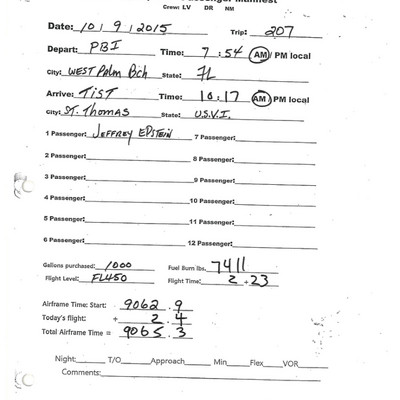 Passenger Manifest
Crew: LV DR NM
Date: 10 / 9 / 2015 Trip: 207
Depart: PBI Time: 7 : 54 AM / PM local
City: WEST PALM Bch State: FL
Arrive: TIST Time: 10 : 17 AM / PM local
City: ST. THOMAS State: U.S.V.I.
1 Passenger: JEFFREY EPSTEIN 7 Passenger:
2 Passenger: 8 Passenger:
3 Passenger: 9 Passenger:
4 Passenger: 10 Passenger:
5 Passenger: 11 Passenger:
6 Passenger: 12 Passenger:
Gallons purchased: 1000 Fuel Burn lbs. 7411
Flight Level: FL450 Flight Time: 2 + 23
Airframe Time: Start: 9062 . 9
Today's flight: + 2 . 4
Total Airframe Time = 9065 . 3
Night: T/O Approach Min Flex VOR
Comments: